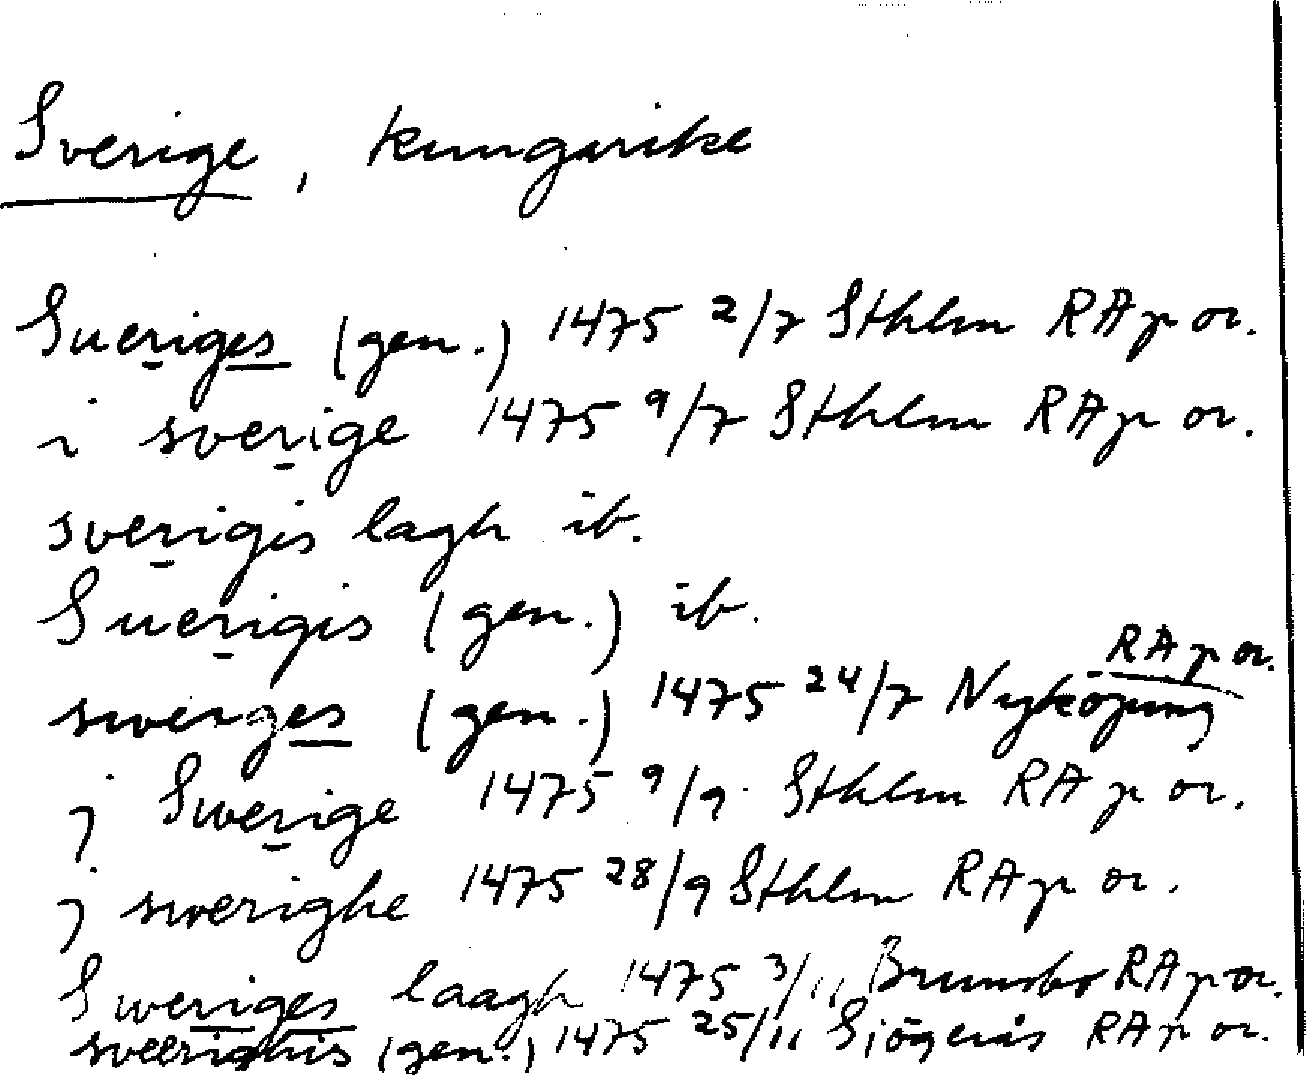 Sverige, kungarike
Sueriges (gen.) 1475 2/7 Sthlm RAp or.
i sverige 1475 9/7 Sthlm RAp or.
sverigis lagh ib.
Suerigis (gen.) ib.
swerges (gen.) 1475 24/7 Nyköping RAp or.
j Swerige 1475 9/9 Sthlm RAp or.
j swerighe 1475 28/9 Sthlm RAp or.
Sweriges laagh 1475 3/11 Brunsbo RAp or.
sveerighis (gen.) 1475 25/11 Sjögerås RAp or.